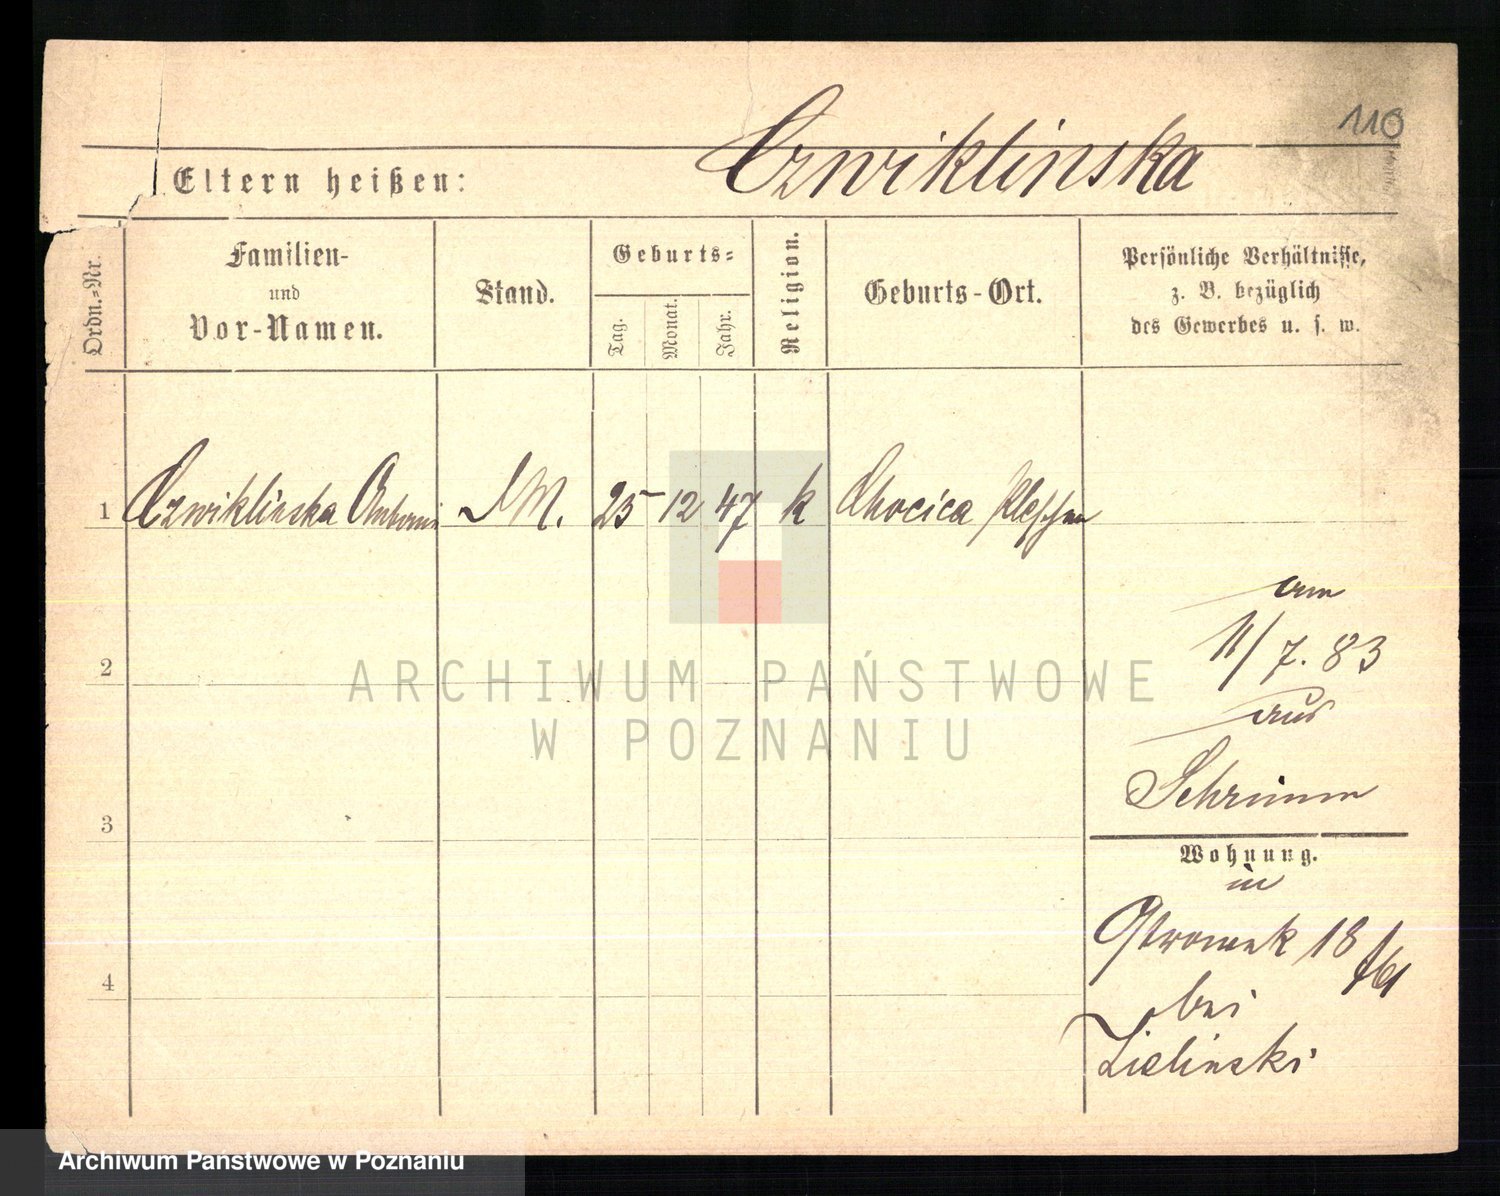 110
Czwiklinska
Eltern heißen:
Ordn.-Nr.
Familien-
und
Vor-Namen.
Stand.
Geburts-
Tag.
Monat.
Jahr.
Religion.
Geburts-Ort.
Persönliche Verhältnisse,
z. B. bezüglich
des Gewerbes u. s. w.
1 Czwiklinska Antonie 25 12 47 k Chocica Pleschen
am
11/7. 83
aus
Schrimm
2
ARCHIWUM PAŃSTWOWE
W POZNANIU
3
Wohnung.
in
Ostrowek 18
bei
Zielinski
4
Archiwum Państwowe w Poznaniu